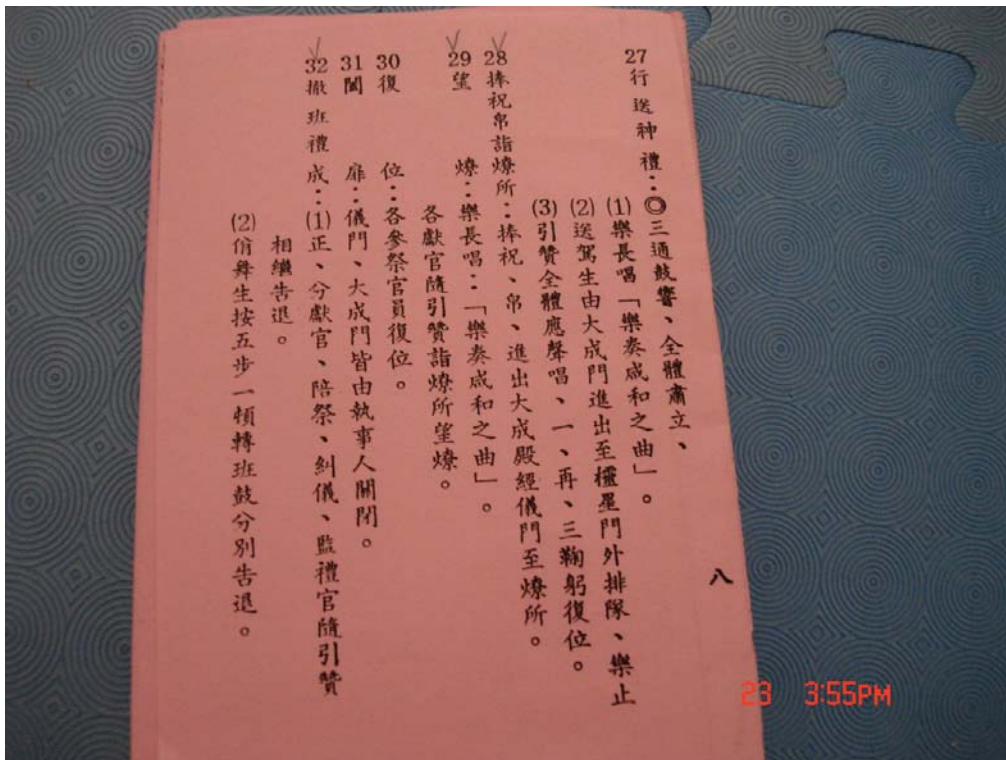 27行送神禮：◎三通鼓響、全體肅立、
(1)樂長唱「樂奏咸和之曲」。
(2)送駕生由大成門進出至欞星門外排隊、樂止
(3)引贊全體應聲唱、一、再、三鞠躬復位。
28捧祝帛詣燎所：捧祝、帛、進出大成殿經儀門至燎所。
29望燎：樂長唱：「樂奏咸和之曲」。
各獻官隨引贊詣燎所望燎。
30復位：各參祭官員復位。
31闔扉：儀門、大成門皆由執事人關閉。
32撤班禮成：(1)正、分獻官、陪祭、糾儀、監禮官隨引贊
相繼告退。
(2)佾舞生按五步一頓轉班鼓分別告退。
八
23 3:55PM